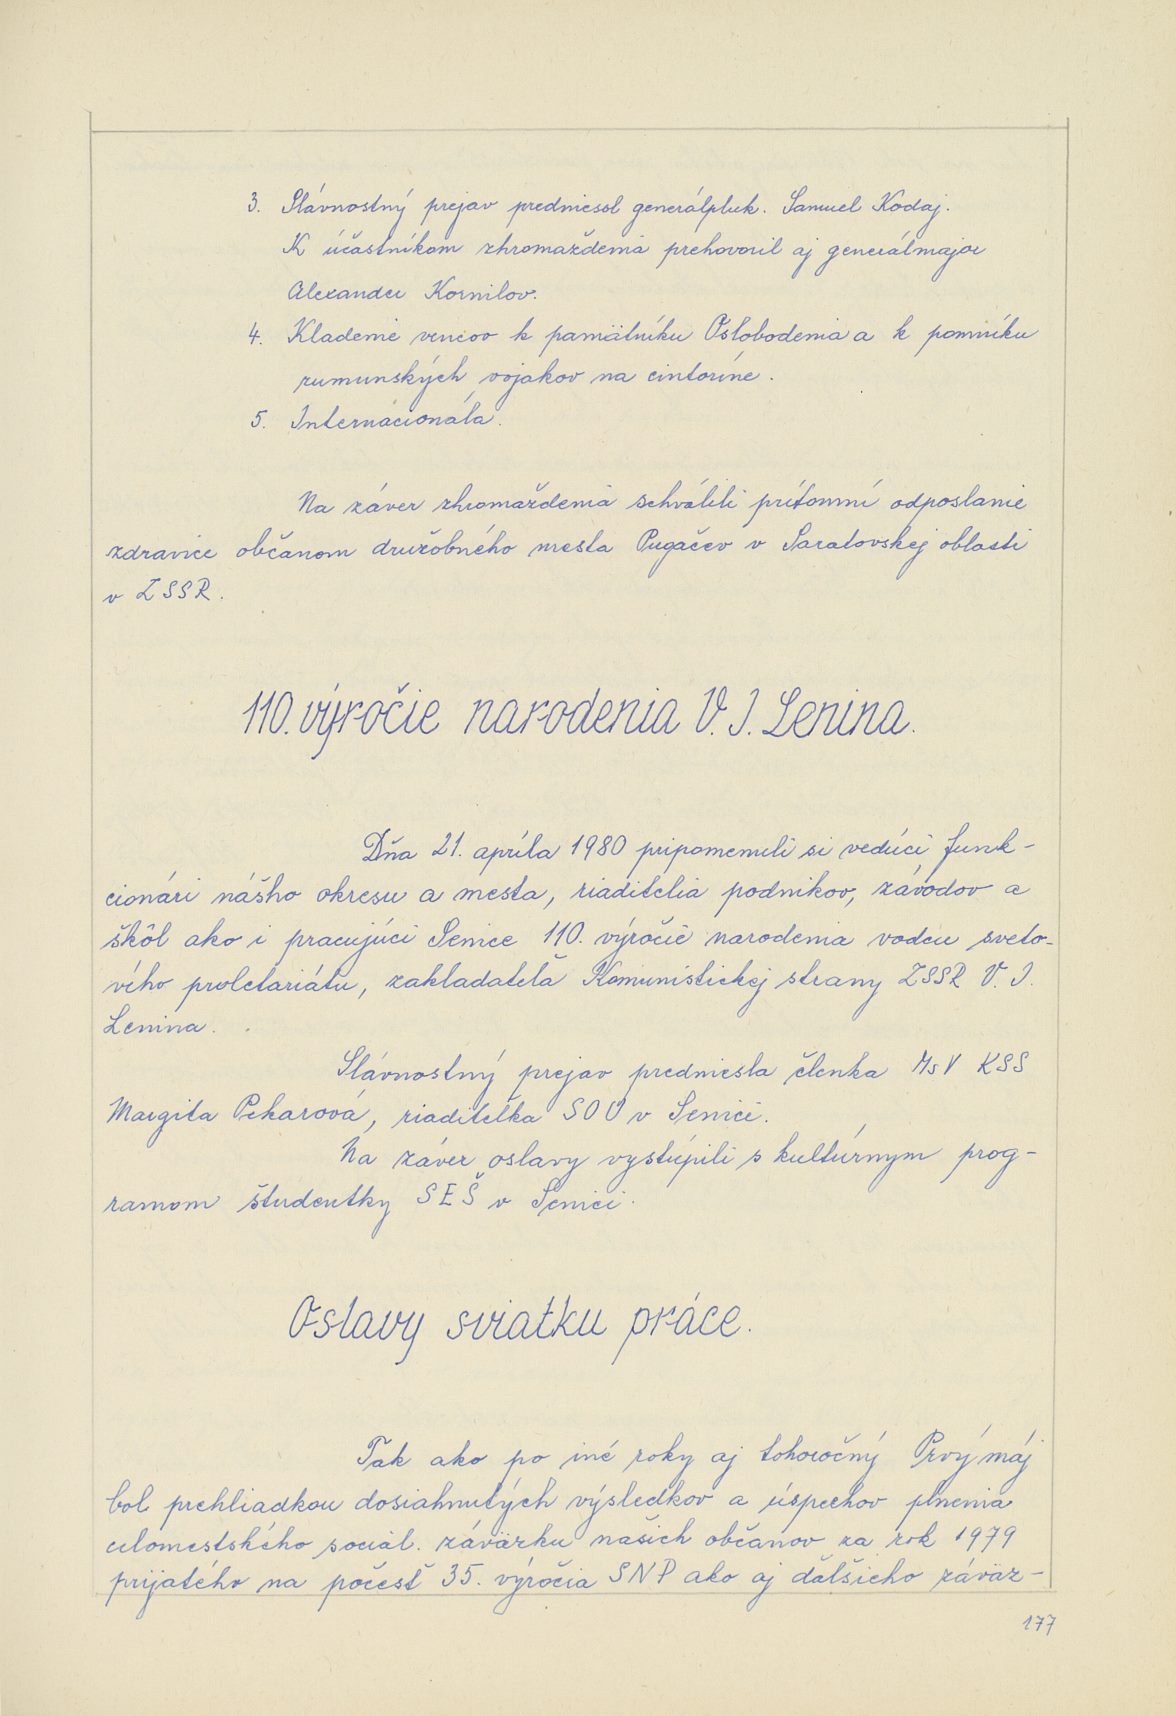 3. Slávnostný prejav predniesol generálpluk. Samuel Kodaj.
K účastníkom zhromaždenia prehovoril aj generálmajor
Alexander Kornilov.
4. Kladenie vencov k pamätníku Oslobodenia a k pomníku
rumunských vojakov na cintoríne.
5. Internacionála.
Na záver zhromaždenia schválili prítomní odposlanie
zdravice občanom družobného mesta Pugačev v Saratovskej oblasti
v ZSSR.
110. výročie narodenia V. I. Lenina.
Dňa 21. apríla 1980 pripomenuli si vedúci funk-
cionári nášho okresu a mesta, riaditelia podnikov, závodov a
škôl ako i pracujúci Senice 110. výročie narodenia vodcu sveto-
vého proletariátu, zakladateľa Komunistickej strany ZSSR V. I.
Lenina.
Slávnostný prejav predniesla členka MsV KSS
Margita Pekarová, riaditeľka SOU v Senici.
Na záver oslavy vystúpili s kultúrnym prog-
ramom študentky SEŠ v Senici.
Oslavy sviatku práce.
Tak ako po iné roky aj tohoročný Prvý máj
bol prehliadkou dosiahnutých výsledkov a úspechov plnenia
celomestského sociál. záväzku našich občanov za rok 1979
prijatého na počesť 35. výročia SNP ako aj ďalšieho záväz-
177